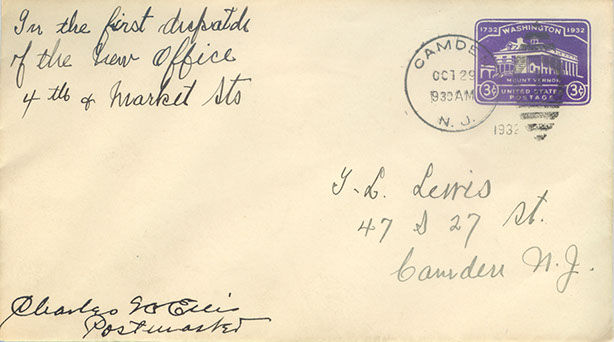 In the first dispatch
of the new Office
4th & Market Sts
CAMDEN
OCT 29
930 AM
N. J.
1932
1732 WASHINGTON 1932
MOUNT VERNON
3¢ UNITED STATES POSTAGE 3¢
T. L. Lewis
47 S 27 St.
Camden N.J.
Charles W Ellis
Postmaster